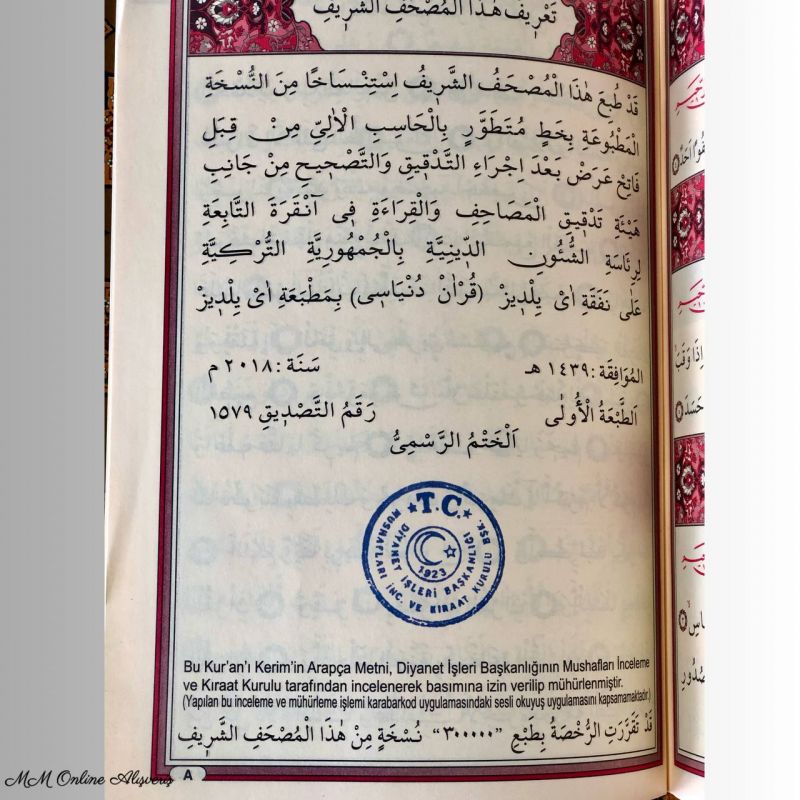 تَعْرِيفُ هٰذَا الْمُصْحَفِ الشَّرِيفِ
قَدْ طُبِعَ هٰذَا الْمُصْحَفُ الشَّرِيفُ اِسْتِنْسَاخًا مِنَ النُّسْخَةِ
الْمَطْبُوعَةِ بِخَطٍ مُتَطَوَّرٍ بِالْحَاسِبِ الْاٰلِيِّ مِنْ قِبَلِ
فَاتِحْ عَرَضْ بَعْدَ اِجْرَاءِ التَّدْقِيقِ وَالتَّصْحِيحِ مِنْ جَانِبِ
هَيْئَةِ تَدْقِيقِ الْمَصَاحِفِ وَالْقِرَاءَةِ فِى آنْقَرَةَ التَّابِعَةِ
لِرِئَاسَةِ الشُّئُونِ الدِّينِيَّةِ بِالْجُمْهُورِيَّةِ التُّرْكِيَّةِ
عَلٰى نَفَقَةِ اٰىْ يِلْدِيزْ (قُرْاٰنْ دُنْيَاسِى) بِمَطْبَعَةِ اٰىْ يِلْدِيزْ
المُوَافِقَة : ١٤٣٩ هـ سَنَة : ٢٠١٨ م
اَلطَّبْعَةُ الْأُولٰى رَقَمُ التَّصْدِيقِ ١٥٧٩
اَلْخَتْمُ الرَّسْمِىُّ
★T.C.★
DİYANET İŞLERİ BAŞKANLIĞI
MUSHAFLARI İNC. VE KIRAAT KURULU BŞK.
1923
Bu Kur'an'ı Kerim'in Arapça Metni, Diyanet İşleri Başkanlığının Mushafları İnceleme
ve Kıraat Kurulu tarafından incelenerek basımına izin verilip mühürlenmiştir.
(Yapılan bu inceleme ve mühürleme işlemi karabarkod uygulamasındaki sesli okuyuş uygulamasını kapsamamaktadır.)
قَدْ تَقَرَّرَتِ الرُّخْصَةُ بِطَبْعِ "٣٠٠٠٠٠" نُسْخَةٍ مِنْ هٰذَا الْمُصْحَفِ الشَّرِيفِ
A
MM Online Alışveriş